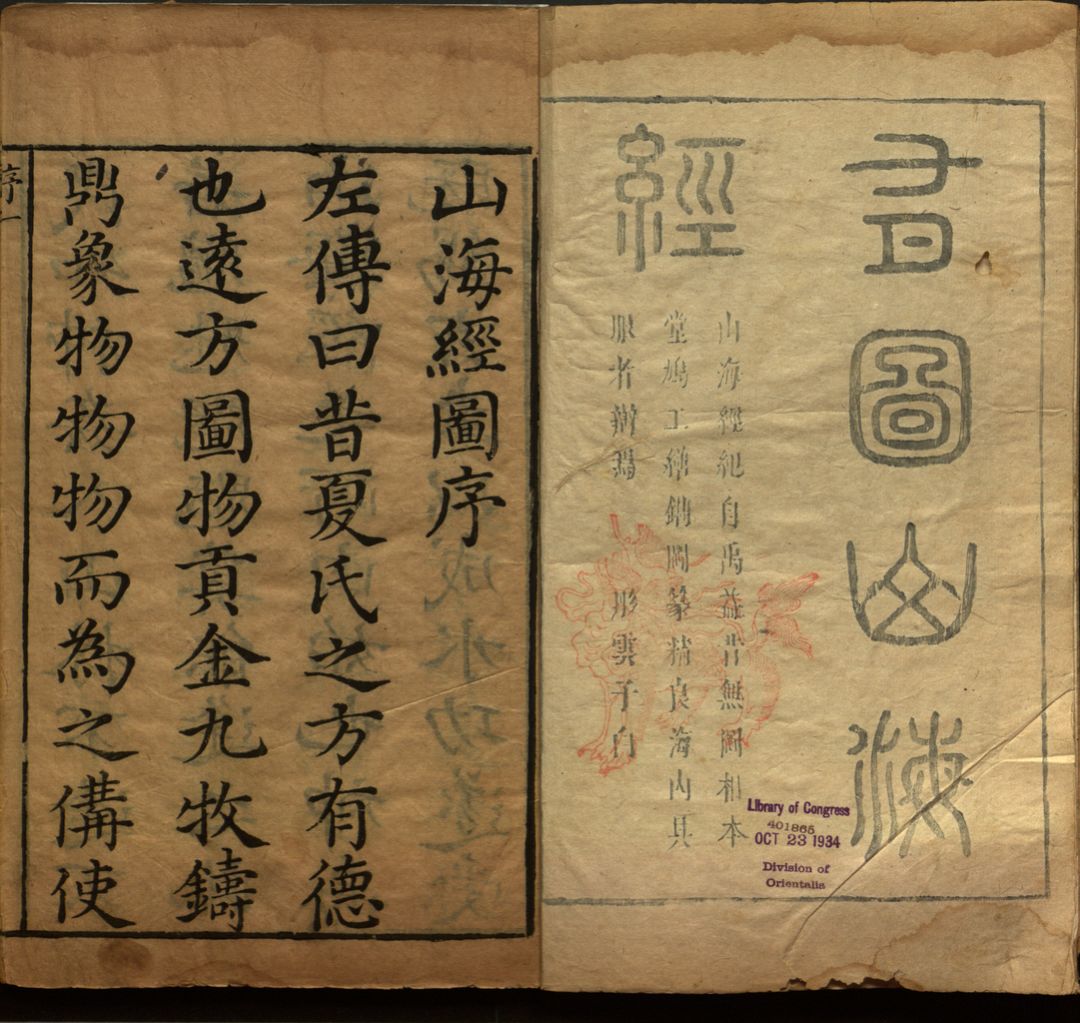 有圖山海
經
山海經紀自禹益昔無圖相本
堂鳩工繪鐫圖篆精良海內具
眼者辨焉 彤雲子白
Library of Congress
401865
OCT 23 1934
Division of
Orientalia
山海經圖序
左傳曰昔夏氏之方有德
也遠方圖物貢金九牧鑄
鼎象物物物而為之備使
序一